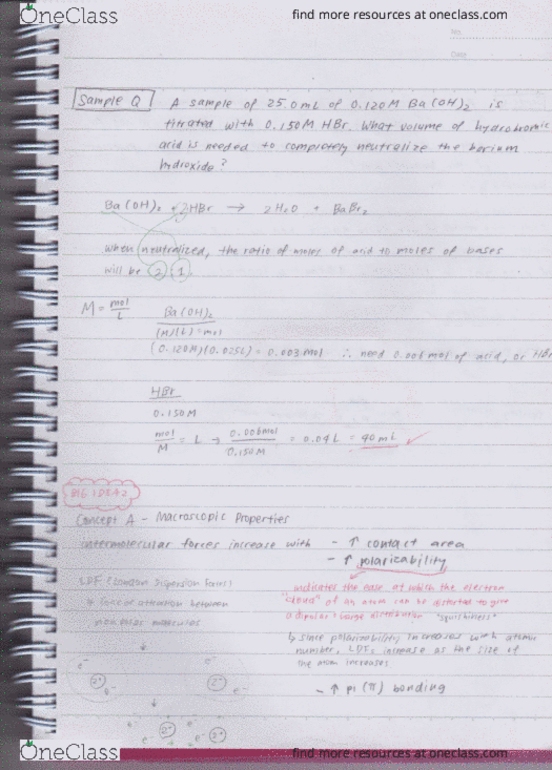 OneClass find more resources at oneclass.com
No.
Date
Sample Q A sample of 25.0mL of 0.120M Ba(OH)2 is
titrated with 0.150M HBr. What volume of hydrobromic
acid is needed to completely neutralize the barium
hydroxide?
Ba(OH)2 + 2HBr → 2H2O + BaBr2
When neutralized, the ratio of moles of acid to moles of bases
will be 2 1
M = mol/L Ba(OH)2
(M)(L)=mol
(0.120M)(0.025L) = 0.003mol ∴ need 0.006mol of acid, or HBr
HBr
0.150M
mol/M = L → 0.006mol/0.150M = 0.04L = 40mL ✓
BIG IDEA 2
Concept A - Macroscopic Properties
intermolecular forces increase with - ↑ contact area
- ↑ polarizability
LDF (London Dispersion Forces) indicates the ease at which the electron
↳ force of attraction between "cloud" of an atom can be distorted to give
nonpolar molecules a dipolar charge distribution "squishiness"
↳ since polarizability increases with atomic
number, LDFs increase as the size of
the atom increases
- ↑ pi (π) bonding
e- e-
2+ e- 2+ e-
e- e-
e- 2+ e- 2+
OneClass find more resources at oneclass.com